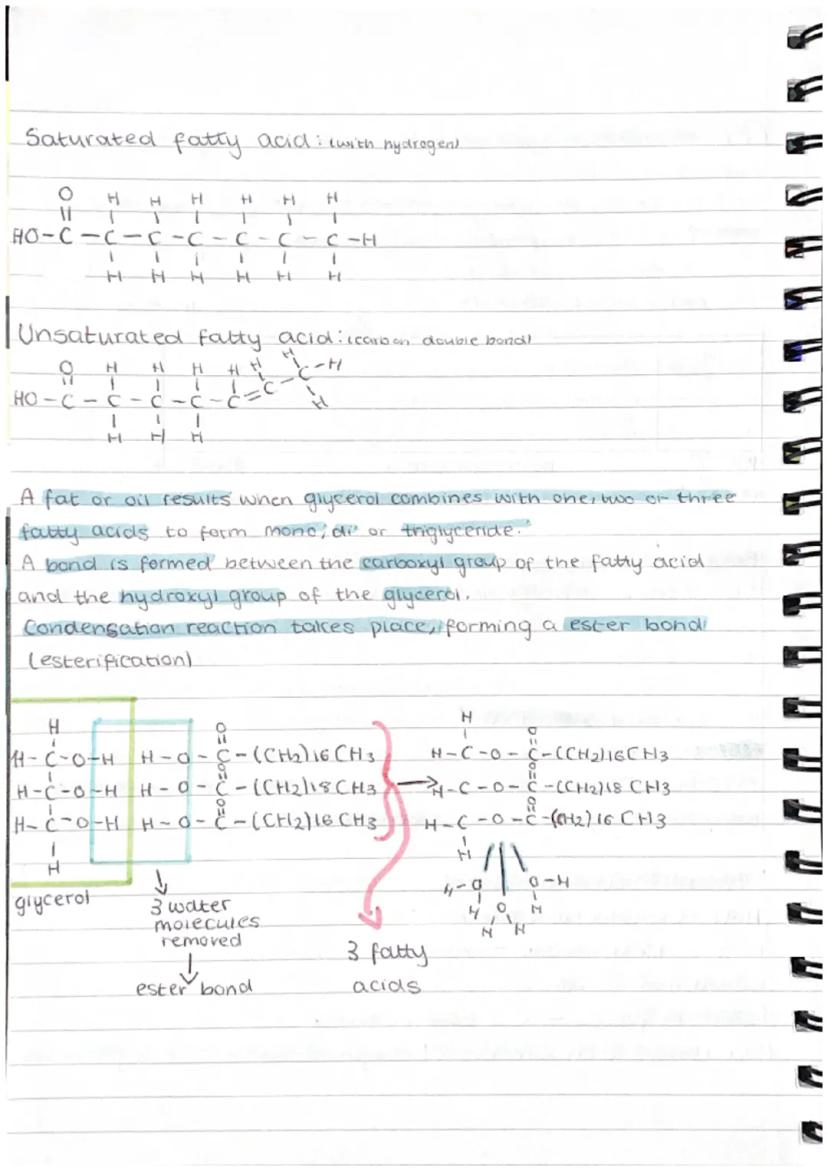 Saturated fatty acid: (with hydrogen)
O H H H H H H
HO-C-C-C-C-C-C-C-H
H H H H H H
Unsaturated fatty acid: (carbon double bond)
O H H H H H H H
HO-C-C-C-C-C=C-C-H
H H H H
A fat or oil results when glycerol combines with one, two or three
fatty acids to form mono, di or triglyceride.
A bond is formed between the carboxyl group of the fatty acid
and the hydroxyl group of the glycerol.
Condensation reaction takes place, forming a ester bond
(esterification)
H O H O
H-C-O-H H-O-C-(CH2)16CH3 H-C-O-C-(CH2)16CH3
O O
H-C-O-H H-O-C-(CH2)18CH3 → H-C-O-C-(CH2)18CH3
O O
H-C-O-H H-O-C-(CH2)16CH3 H-C-O-C-(CH2)16CH3
H H
H-O O O-H
H H H H
glycerol
3 water
molecules
removed
ester bond
3 fatty
acids